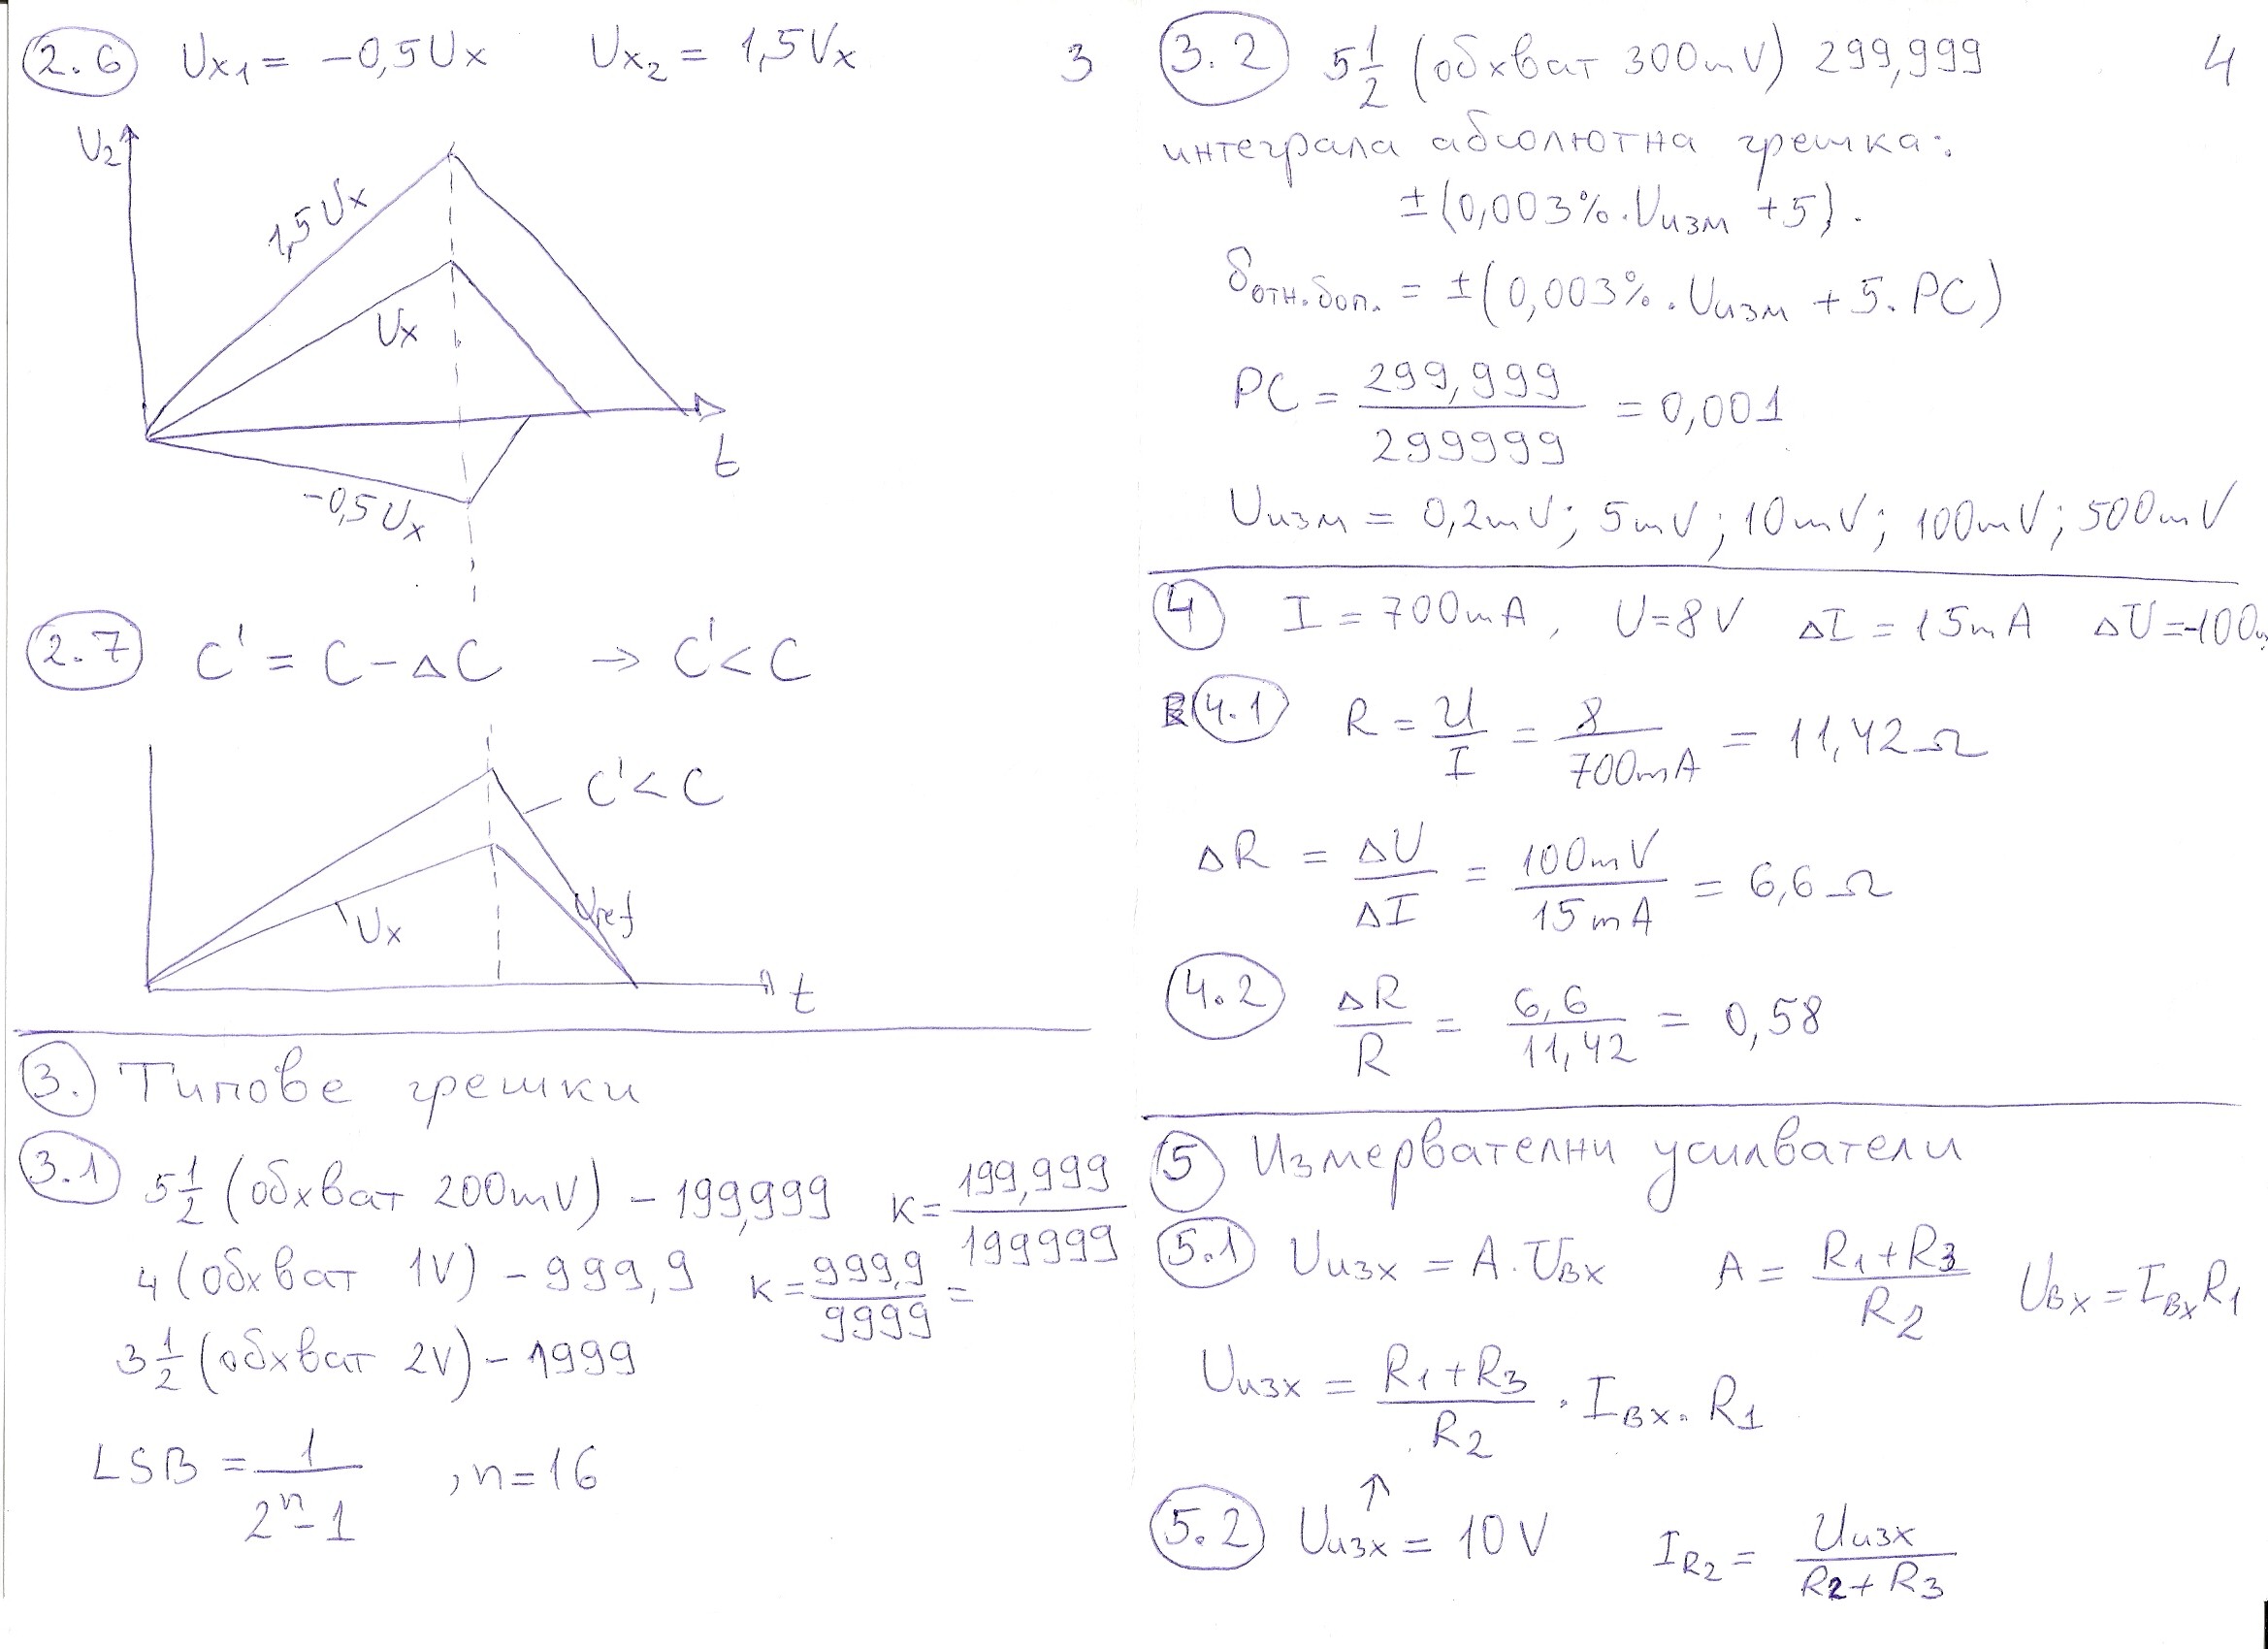 3
2.6 Ux1 = -0,5Ux Ux2 = 1,5Ux
U2
1,5Ux
Ux
t
-0,5Ux
2.7 C' = C - ΔC → C' < C
C' < C
Ux
Uref
t
3. Типове грешки
3.1 5 1/2 (обхват 200mV) - 199,999 K = 199,999 / 199999
4 (обхват 1V) - 999,9 K = 999,9 / 9999 =
3 1/2 (обхват 2V) - 1999
LSB = 1 / 2^n - 1 , n = 16
4
3.2 5 1/2 (обхват 300mV) 299,999
интеграла абсолютна грешка:
±(0,003%.Uизм + 5).
δотн.доп. = ±(0,003%.Uизм + 5.PC)
PC = 299,999 / 299999 = 0,001
Uизм = 0,2mV; 5mV; 10mV; 100mV; 500mV
4 I = 700mA, U = 8V ΔI = 15mA ΔU = -100
4.1 R = U / I = 8 / 700mA = 11,42Ω
ΔR = ΔU / ΔI = 100mV / 15mA = 6,6Ω
4.2 ΔR / R = 6,6 / 11,42 = 0,58
5 Измервателни усилватели
5.1 Uизх = A.Uвх A = R1+R3 / R2 Uвх = IвхR1
Uизх = R1+R3 / R2 . Iвх.R1
↑
5.2 Uизх = 10V IR2 = Uизх / R2+R3